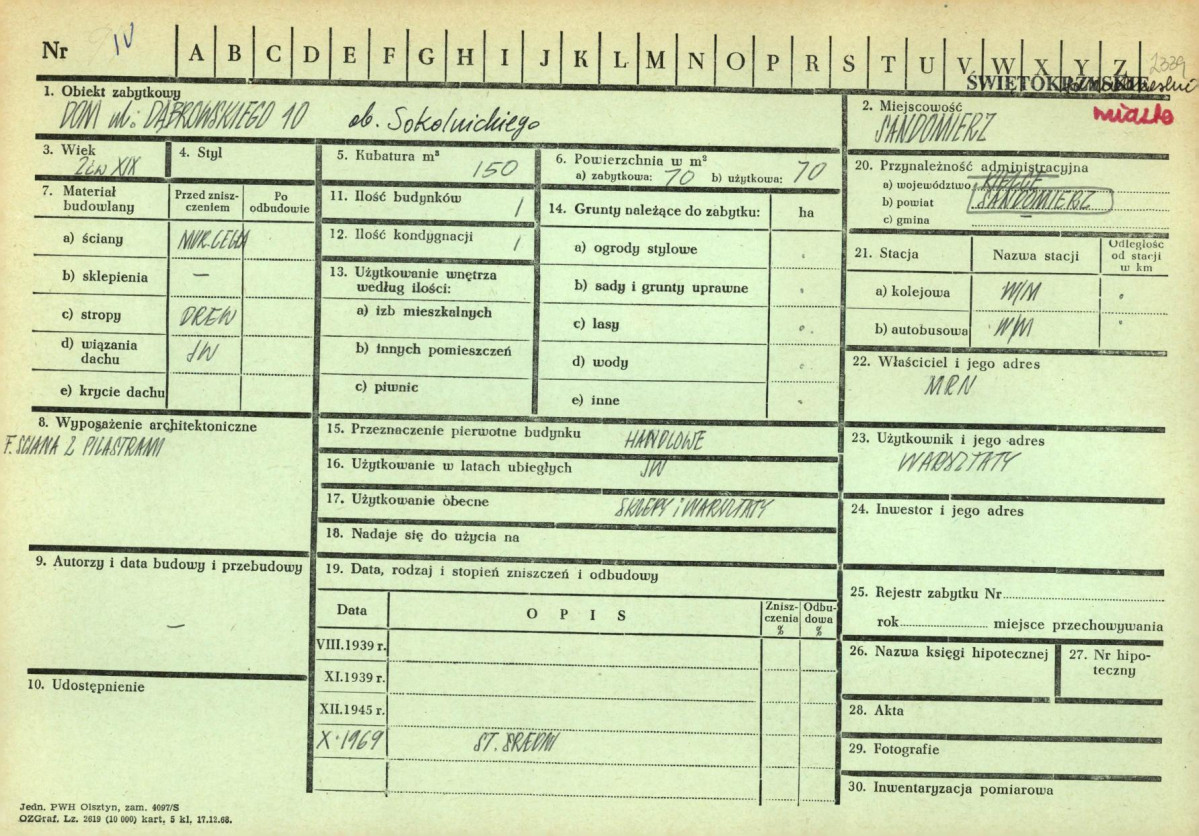 Nr IV A B C D E F G H I J K L M N O P R S T U V W X Y Z 2339
ŚWIĘTOKRZYSKIE
1. Obiekt zabytkowy
DOM ul: DĄBROWSKIEGO 10 ob. Sokolnickiego
2. Miejscowość miasto
SANDOMIERZ
3. Wiek
XIX
4. Styl
5. Kubatura m³ 150
6. Powierzchnia w m²
a) zabytkowa: 70 b) użytkowa: 70
20. Przynależność administracyjna
a) województwo KIELCE
b) powiat SANDOMIERZ
c) gmina —
7. Materiał budowlany
Przed zniszczeniem
Po odbudowie
a) ściany MUR. CEGŁA
b) sklepienia —
c) stropy DREW
d) wiązania dachu JW
e) krycie dachu
11. Ilość budynków 1
12. Ilość kondygnacji 1
13. Użytkowanie wnętrza według ilości:
a) izb mieszkalnych
b) innych pomieszczeń
c) piwnic
14. Grunty należące do zabytku: ha
a) ogrody stylowe
b) sady i grunty uprawne
c) lasy
d) wody
e) inne
21. Stacja Nazwa stacji Odległość od stacji w km
a) kolejowa W/M
b) autobusowa W/M
22. Właściciel i jego adres
MRN
8. Wyposażenie architektoniczne
F. ŚCIANA Z PILASTRAMI
15. Przeznaczenie pierwotne budynku HANDLOWE
16. Użytkowanie w latach ubiegłych JW
17. Użytkowanie obecne SKLEPY i WARSZTATY
18. Nadaje się do użycia na
23. Użytkownik i jego adres
WARSZTATY
24. Inwestor i jego adres
9. Autorzy i data budowy i przebudowy
—
10. Udostępnienie
19. Data, rodzaj i stopień zniszczeń i odbudowy
Data OPIS Zniszczenia % Odbudowa %
VIII.1939 r.
XI.1939 r.
XII.1945 r.
X.1969 ST. ŚREDNI
25. Rejestr zabytku Nr
rok miejsce przechowywania
26. Nazwa księgi hipotecznej
27. Nr hipoteczny
28. Akta
29. Fotografie
30. Inwentaryzacja pomiarowa
Jedn. PWH Olsztyn, zam. 4097/S
OZGraf. Lz. 2619 (10 000) kart. 5 kl, 17.12.68.